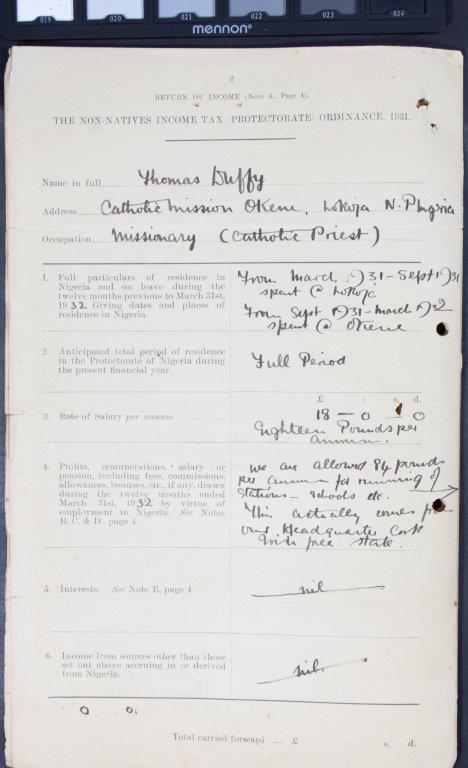 019 020 021 022 023 024
mennon®
2
RETURN OF INCOME (Note A, Page 4).
THE NON-NATIVES INCOME TAX (PROTECTORATE) ORDINANCE, 1931.
Name in full Thomas Duffy
Address Catholic Mission Okene, Lokoja N. P. Nigeria
Occupation Missionary (Catholic Priest)
1. Full particulars of residence in
Nigeria and on leave during the
twelve months previous to March 31st,
1932 Giving dates and places of
residence in Nigeria.
From March 1931 - Sept 1931
spent @ Lokoja
From Sept 1931 - March 1932
spent @ Okene
2. Anticipated total period of residence
in the Protectorate of Nigeria during
the present financial year.
Full Period
3. Rate of Salary per annum ... ...
£ : s. d.
18 - 0 0
Eighteen Pounds per
annum.
4. Profits, remunerations, salary or
pension, including fees, commissions,
allowances, bonuses, etc., if any, drawn
during the twelve months ended
March 31st, 1932 by virtue of
employment in Nigeria. See Notes
B. C. & D., page 4.
We are allowed 84 pounds
per annum for running of
stations - schools etc.
This actually comes from
our Headquarter Cork
Irish free state.
5. Interests. See Note E, page 4.
nil
6. Income from sources other than those
set out above accruing in or derived
from Nigeria.
nil.
Total carried forward ... £ : s. d.